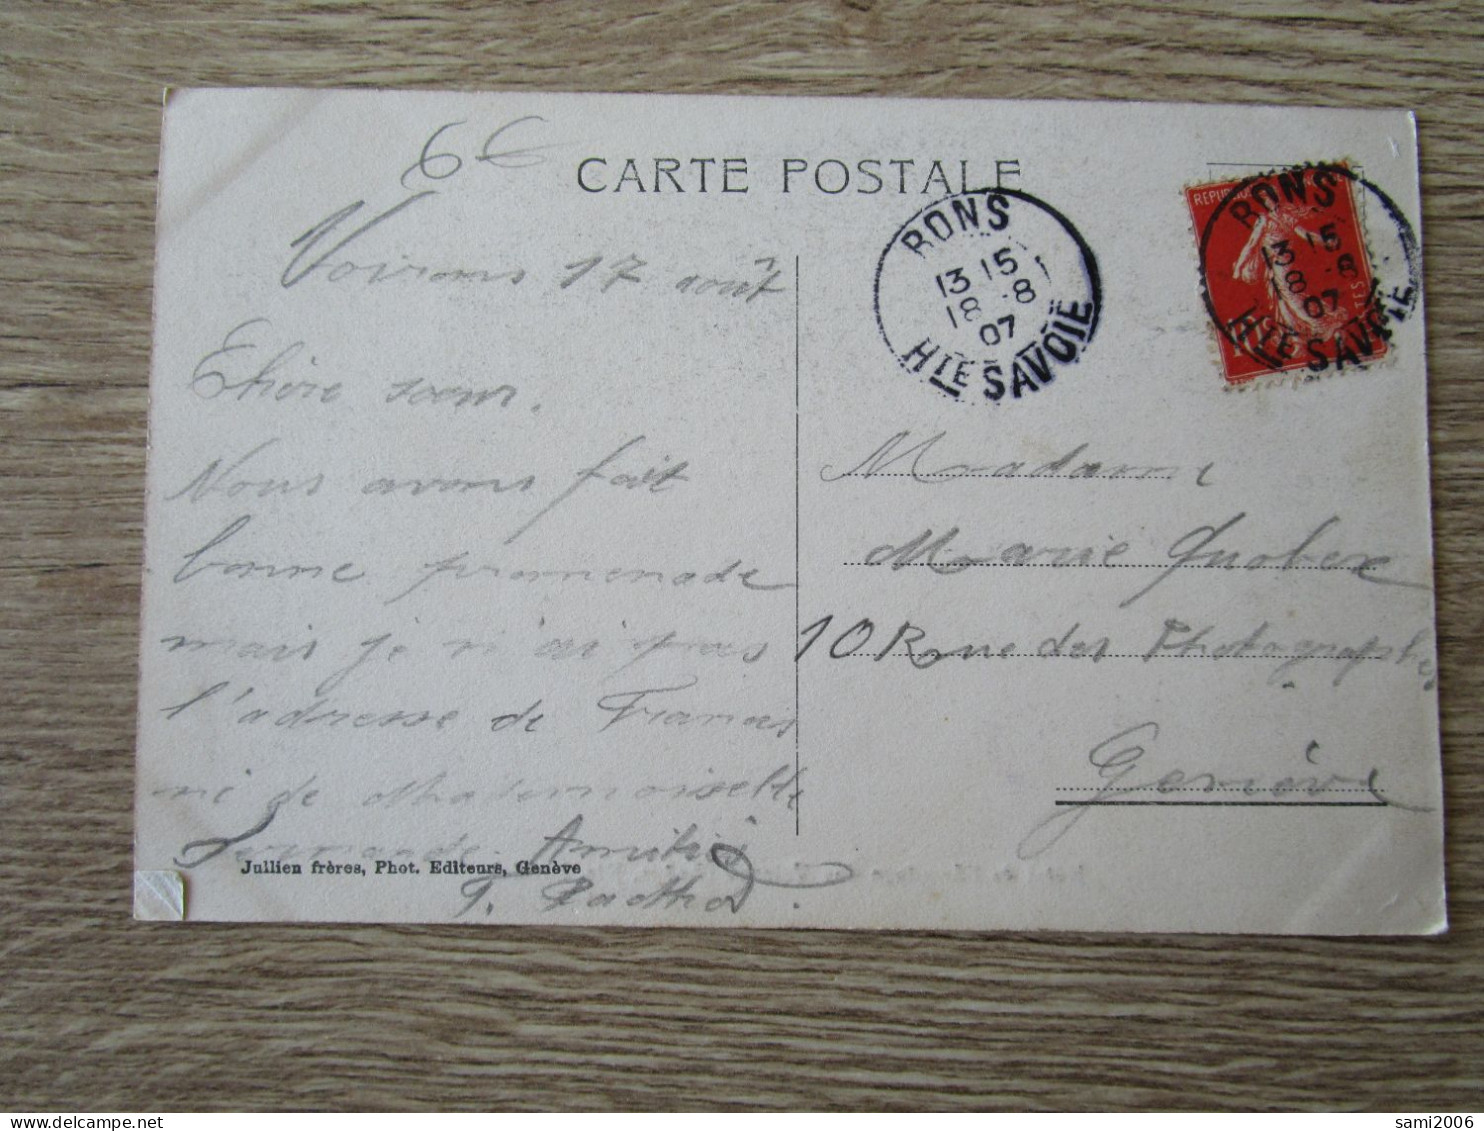 6€
CARTE POSTALE
Voirons 17 août
Chère sœur.
Nous avons fait
bonne promenade
mais je n'ai pas
l'adresse de
ni de Mademoiselle
Amitié
Jullien frères, Phot. Editeurs, Genève
T.
BONS
13 15
18 -8
07
HTE SAVOIE
REPUBLIQUE
BONS
13 15
18 -8
07
HTE SAVOIE
Madame
Marie
10 Rue des Photographes
Genève
sami2006